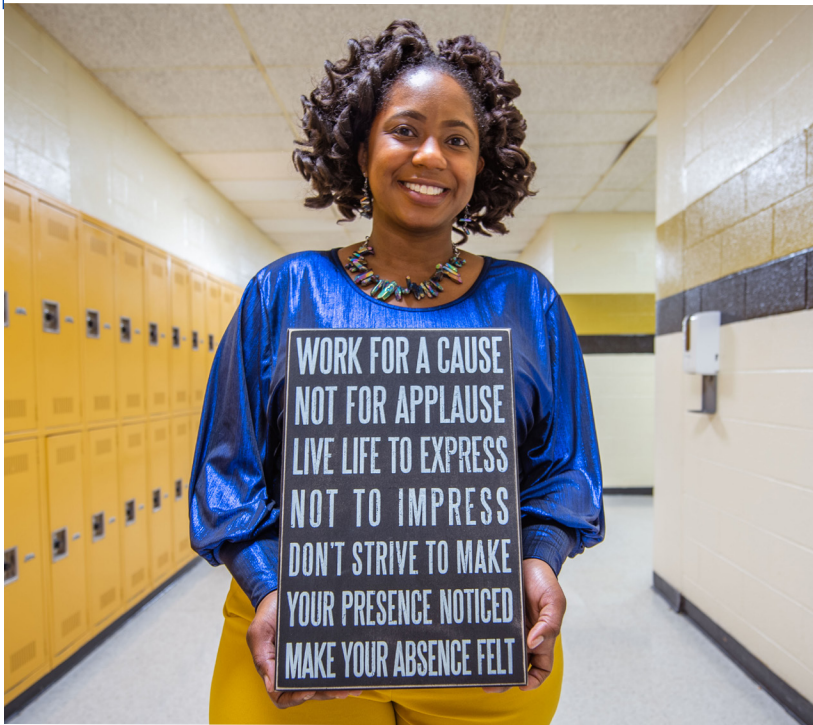 WORK FOR A CAUSE
NOT FOR APPLAUSE
LIVE LIFE TO EXPRESS
NOT TO IMPRESS
DON'T STRIVE TO MAKE
YOUR PRESENCE NOTICED
MAKE YOUR ABSENCE FELT